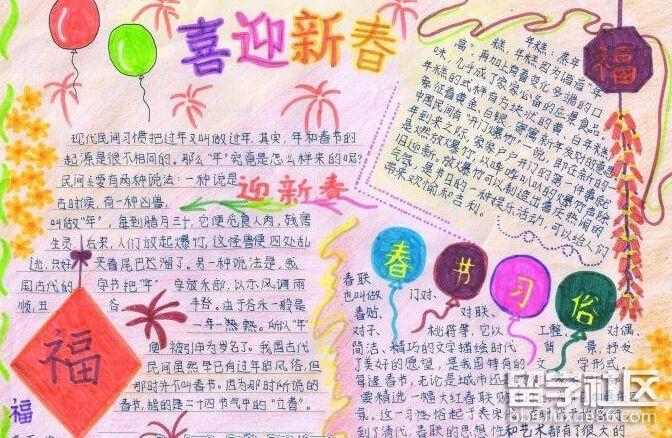 喜迎新春
现代民间习惯把过年又叫做过年,其实,年和春节的
起源是很不相同的。那么"年"究竟是怎么样来的呢?
民间主要有两种说法:一种说是
古时候,有一种凶兽,
叫做"年",每到腊月三十,它便觅食人肉,残害
生灵。后来,人们放起爆竹,这怪兽便四处乱
逃,只好 夹着尾巴逃溜了。另一种说法是,我
国古代的 字书把"年" 字放禾部,以示风调雨
顺,五 谷 丰登。由于谷禾一般是
一年一熟。所以"年"
便 被引申为岁名了。我国古代
民间虽然早已有过年的风俗,但
那时并不叫春节。因为那时所说的
春节,指的是二十四节气中的"立春"。
迎新春
年糕:蒸年
糕,年糕因为谐音"年
高",再加上有着变化多端的口
味,几乎成了家家必备的应景食品。
年糕的式样有方块状的黄、白年糕,
象征着黄金、白银,寄寓新年发财的意思
中国民间有"开门爆竹"一说,即在新的一
年到来之际,家家户户开门的第一件事就
是燃放爆竹,以哔哔叭叭的爆竹声除
旧迎新。放爆竹可以制造出喜庆热闹的
气氛,是节日的一种娱乐活动,可以给人们
带来欢愉和吉利。
福
春节习俗
春联
也叫做 门对、
春贴、 对联、
对子、 桃符等,它以 工整、 对偶、
简洁、精巧的文字描绘时代 背 景,抒发
了美好的愿望,是我国特有的 文 学形式。
每逢春节,无论是城市还
要精选一幅大红春联贴
气。这一习
到了清代,春联的思想性和艺术都有了很大的
福
福
留学社区
bbs.liuxue86.com